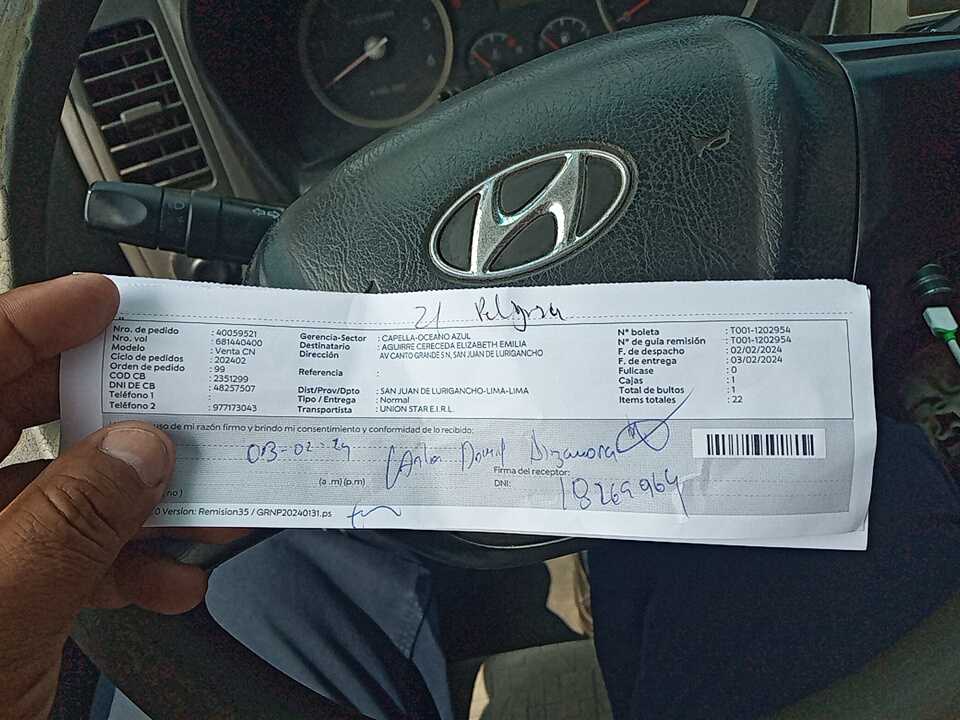 21 Peligrosa
Nro. de pedido : 40059521
Nro. vol : 681440400
Modelo : Venta CN
Ciclo de pedidos : 202402
Orden de pedido : 99
COD CB : 2351299
DNI DE CB : 48257507
Teléfono 1 :
Teléfono 2 : 977173043
Gerencia-Sector : CAPELLA-OCEANO AZUL
Destinatario : AGUIRRE CERECEDA ELIZABETH EMILIA
Dirección : AV CANTO GRANDE S N, SAN JUAN DE LURIGANCHO
Referencia :
Dist/Prov/Dpto : SAN JUAN DE LURIGANCHO-LIMA-LIMA
Tipo / Entrega : Normal
Transportista : UNION STAR E.I.R.L.
N° boleta : T001-1202954
N° de guía remisión : T001-1202954
F. de despacho : 02/02/2024
F. de entrega : 03/02/2024
Fullcase : 0
Cajas : 1
Total de bultos : 1
Items totales : 22
uso de mi razón firmo y brindo mi consentimiento y conformidad de lo recibido:
03-02-24 Carlos David
(a .m) (p.m)
Firma del receptor:
DNI: 18269964
, no )
0 Version: Remision35 / GRNP20240131.ps